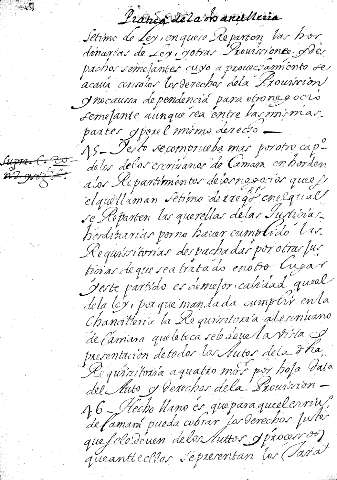 Pratica de la chancilleria
Setimo de Ley, en que se Reparten las hor
dinarias de Ley, y otras Provisiones, y des
pachos semejantes cuyo aprovechamiento se
acava con solos los derechos de la Provision
y no causa dependencia para otro negocio
semejante aunque sea entre las mismas
partes y por el mismo derecho —
45 – Y esto se comprueba mas por otro cap.º
de los de los escrivanos de Camara en horden
a los Repartimientos de los negocios que es
el que llaman setimo de en el qual
se Reparten las querellas de las Justicias
hordinarias por no haver cumplido las
Requisitorias despachadas por otras Jus
ticias de que se a tratado en otro Lugar
y este partido es de mejor calidad que el
de la ley, porque mandada cumplir en la
Chancilleria la Requisitoria al escrivano
de Camara que le toca se le deve la Vista y
presentacion de todos los Autos de la dha
Requisitoria a quatro mrs por hoja Vista
del Auto y derechos de la Provision —
46 – Y hecho llano es, que para que el escriv.º
de Camara pueda cobrar los derechos justos
que se le deven de los Auttos y processos
que ante ellos se presentan los